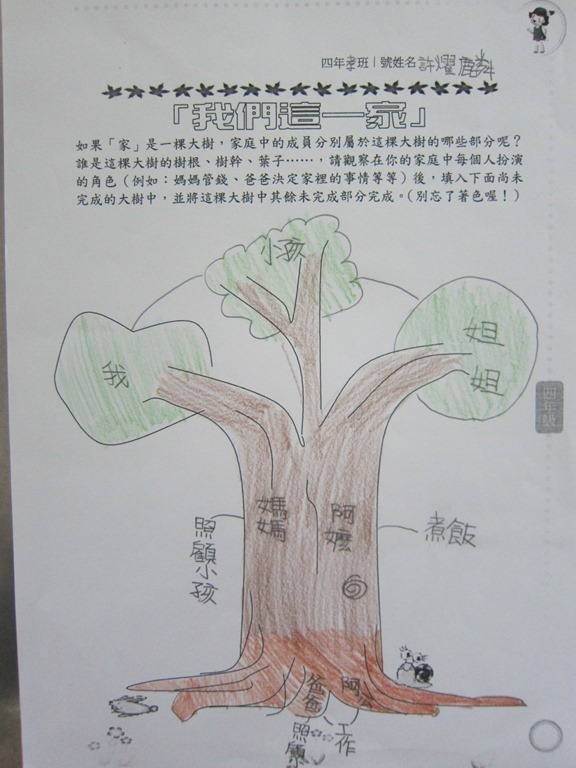 四年孝班1號姓名許燿麟
「我們這一家」
如果「家」是一棵大樹，家庭中的成員分別屬於這棵大樹的哪些部分呢？
誰是這棵大樹的樹根、樹幹、葉子……，請觀察在你的家庭中每個人扮演
的角色（例如：媽媽管錢、爸爸決定家裡的事情等等）後，填入下面尚未
完成的大樹中，並將這棵大樹中其餘未完成部分完成。（別忘了著色喔！）
小孩
我
姐姐
四年級
媽媽
阿嬤
照顧小孩
煮飯
爸爸
阿公
照顧
工作